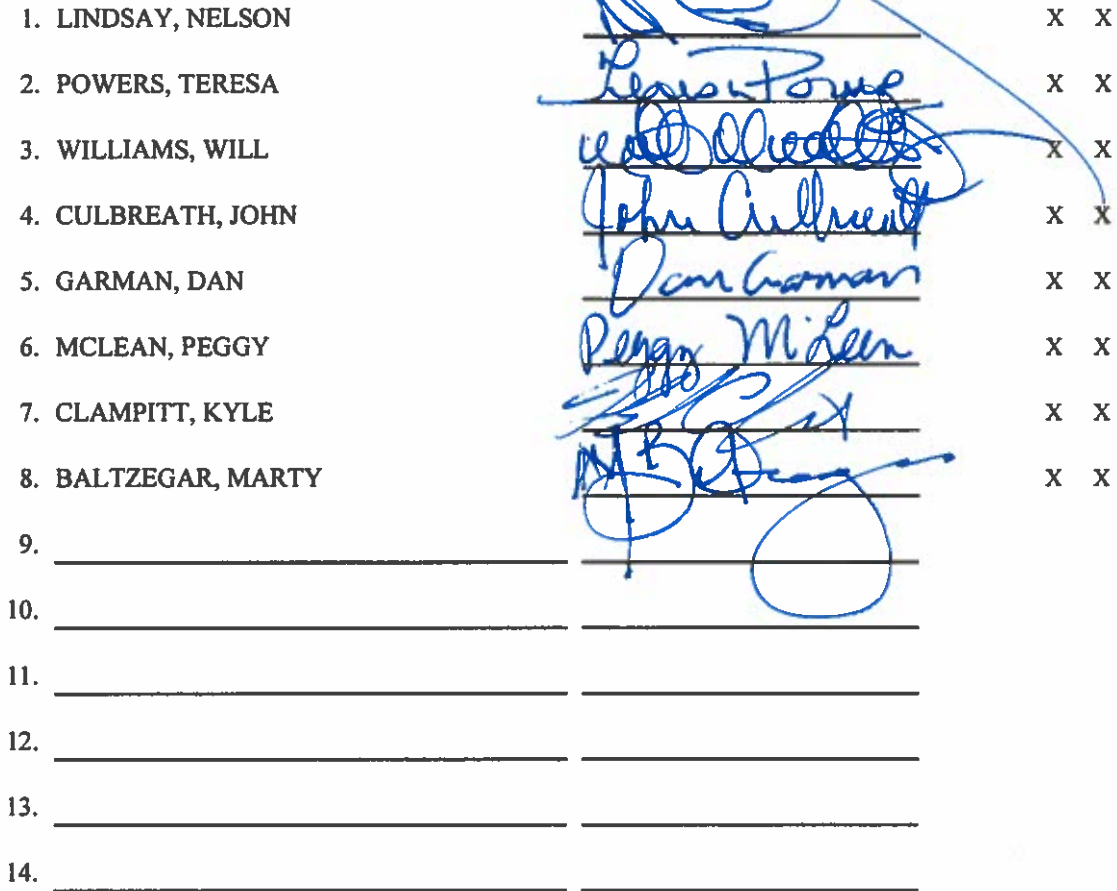 1. LINDSAY, NELSON X X
2. POWERS, TERESA Teresa Powers X X
3. WILLIAMS, WILL X X
4. CULBREATH, JOHN John Culbreath X X
5. GARMAN, DAN Dan Garman X X
6. MCLEAN, PEGGY Peggy McLean X X
7. CLAMPITT, KYLE X X
8. BALTZEGAR, MARTY X X
9.
10.
11.
12.
13.
14.